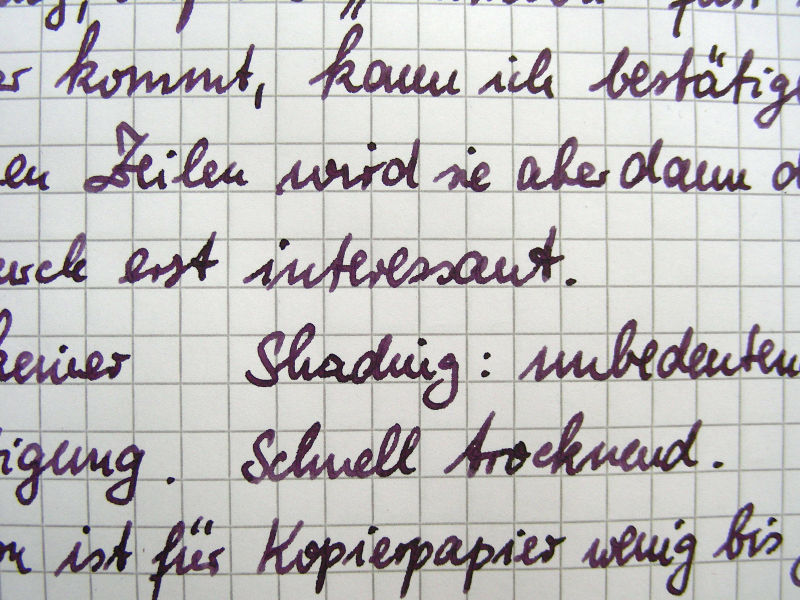 er kommt, kann ich bestätige
en Zeilen wird sie aber dann d
urch erst interessant.
keiner Shading: unbedeuten
igung. Schnell trocknend.
on ist für Kopierpapier wenig bis